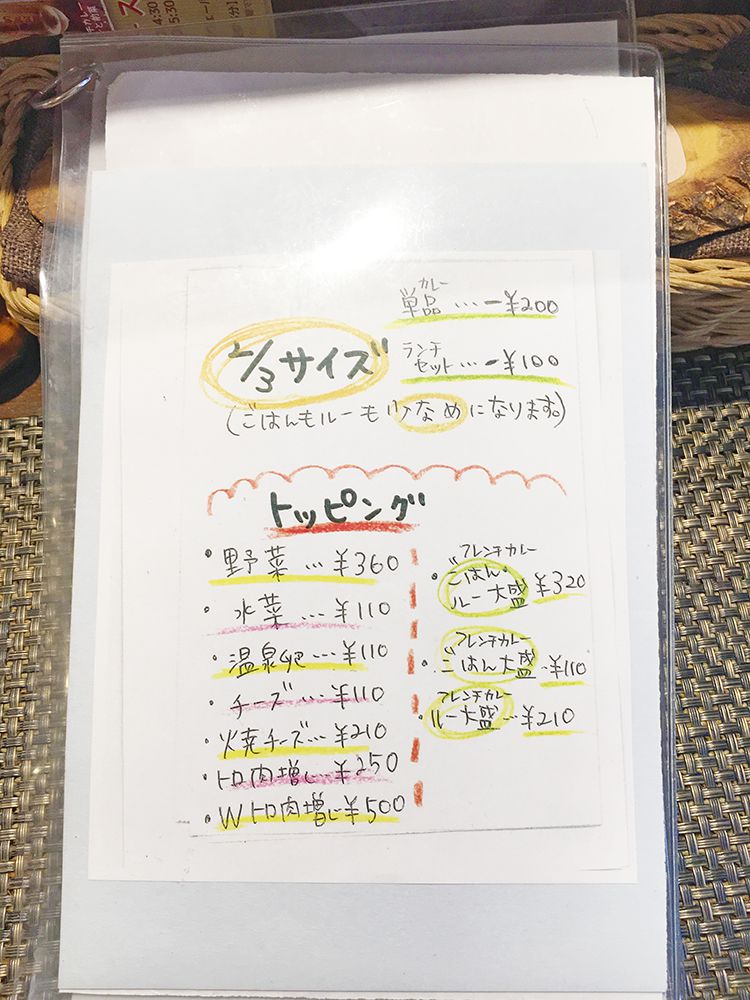 4:30
5:30
カレー
単品…-¥200
2/3サイズ
ランチ
セット…-¥100
(ごはんもルーも少なめになります。)
トッピング
・野菜…¥360
・水菜…¥110
・温泉卵…¥110
・チーズ…¥110
・焼チーズ…¥210
・トロ肉増し¥250
・Wトロ肉増し¥500
フレンチカレー
・ごはん・
ルー大盛¥320
フレンチカレー
・ごはん大盛・¥110
フレンチカレー
・ルー大盛…¥210